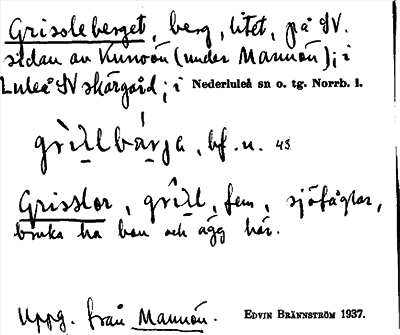 Grissleberget, berg, litet, på SV.
sidan av Kunoön (under Mannön); i
Luleå SV skärgård; i Nederluleå sn o. tg. Norrb. l.
bf. n. 43
Grisslor, fem, sjöfåglar,
bruka ha bon och ägg här.
Uppg. från Mannön. EDVIN BRÄNNSTRÖM 1937.